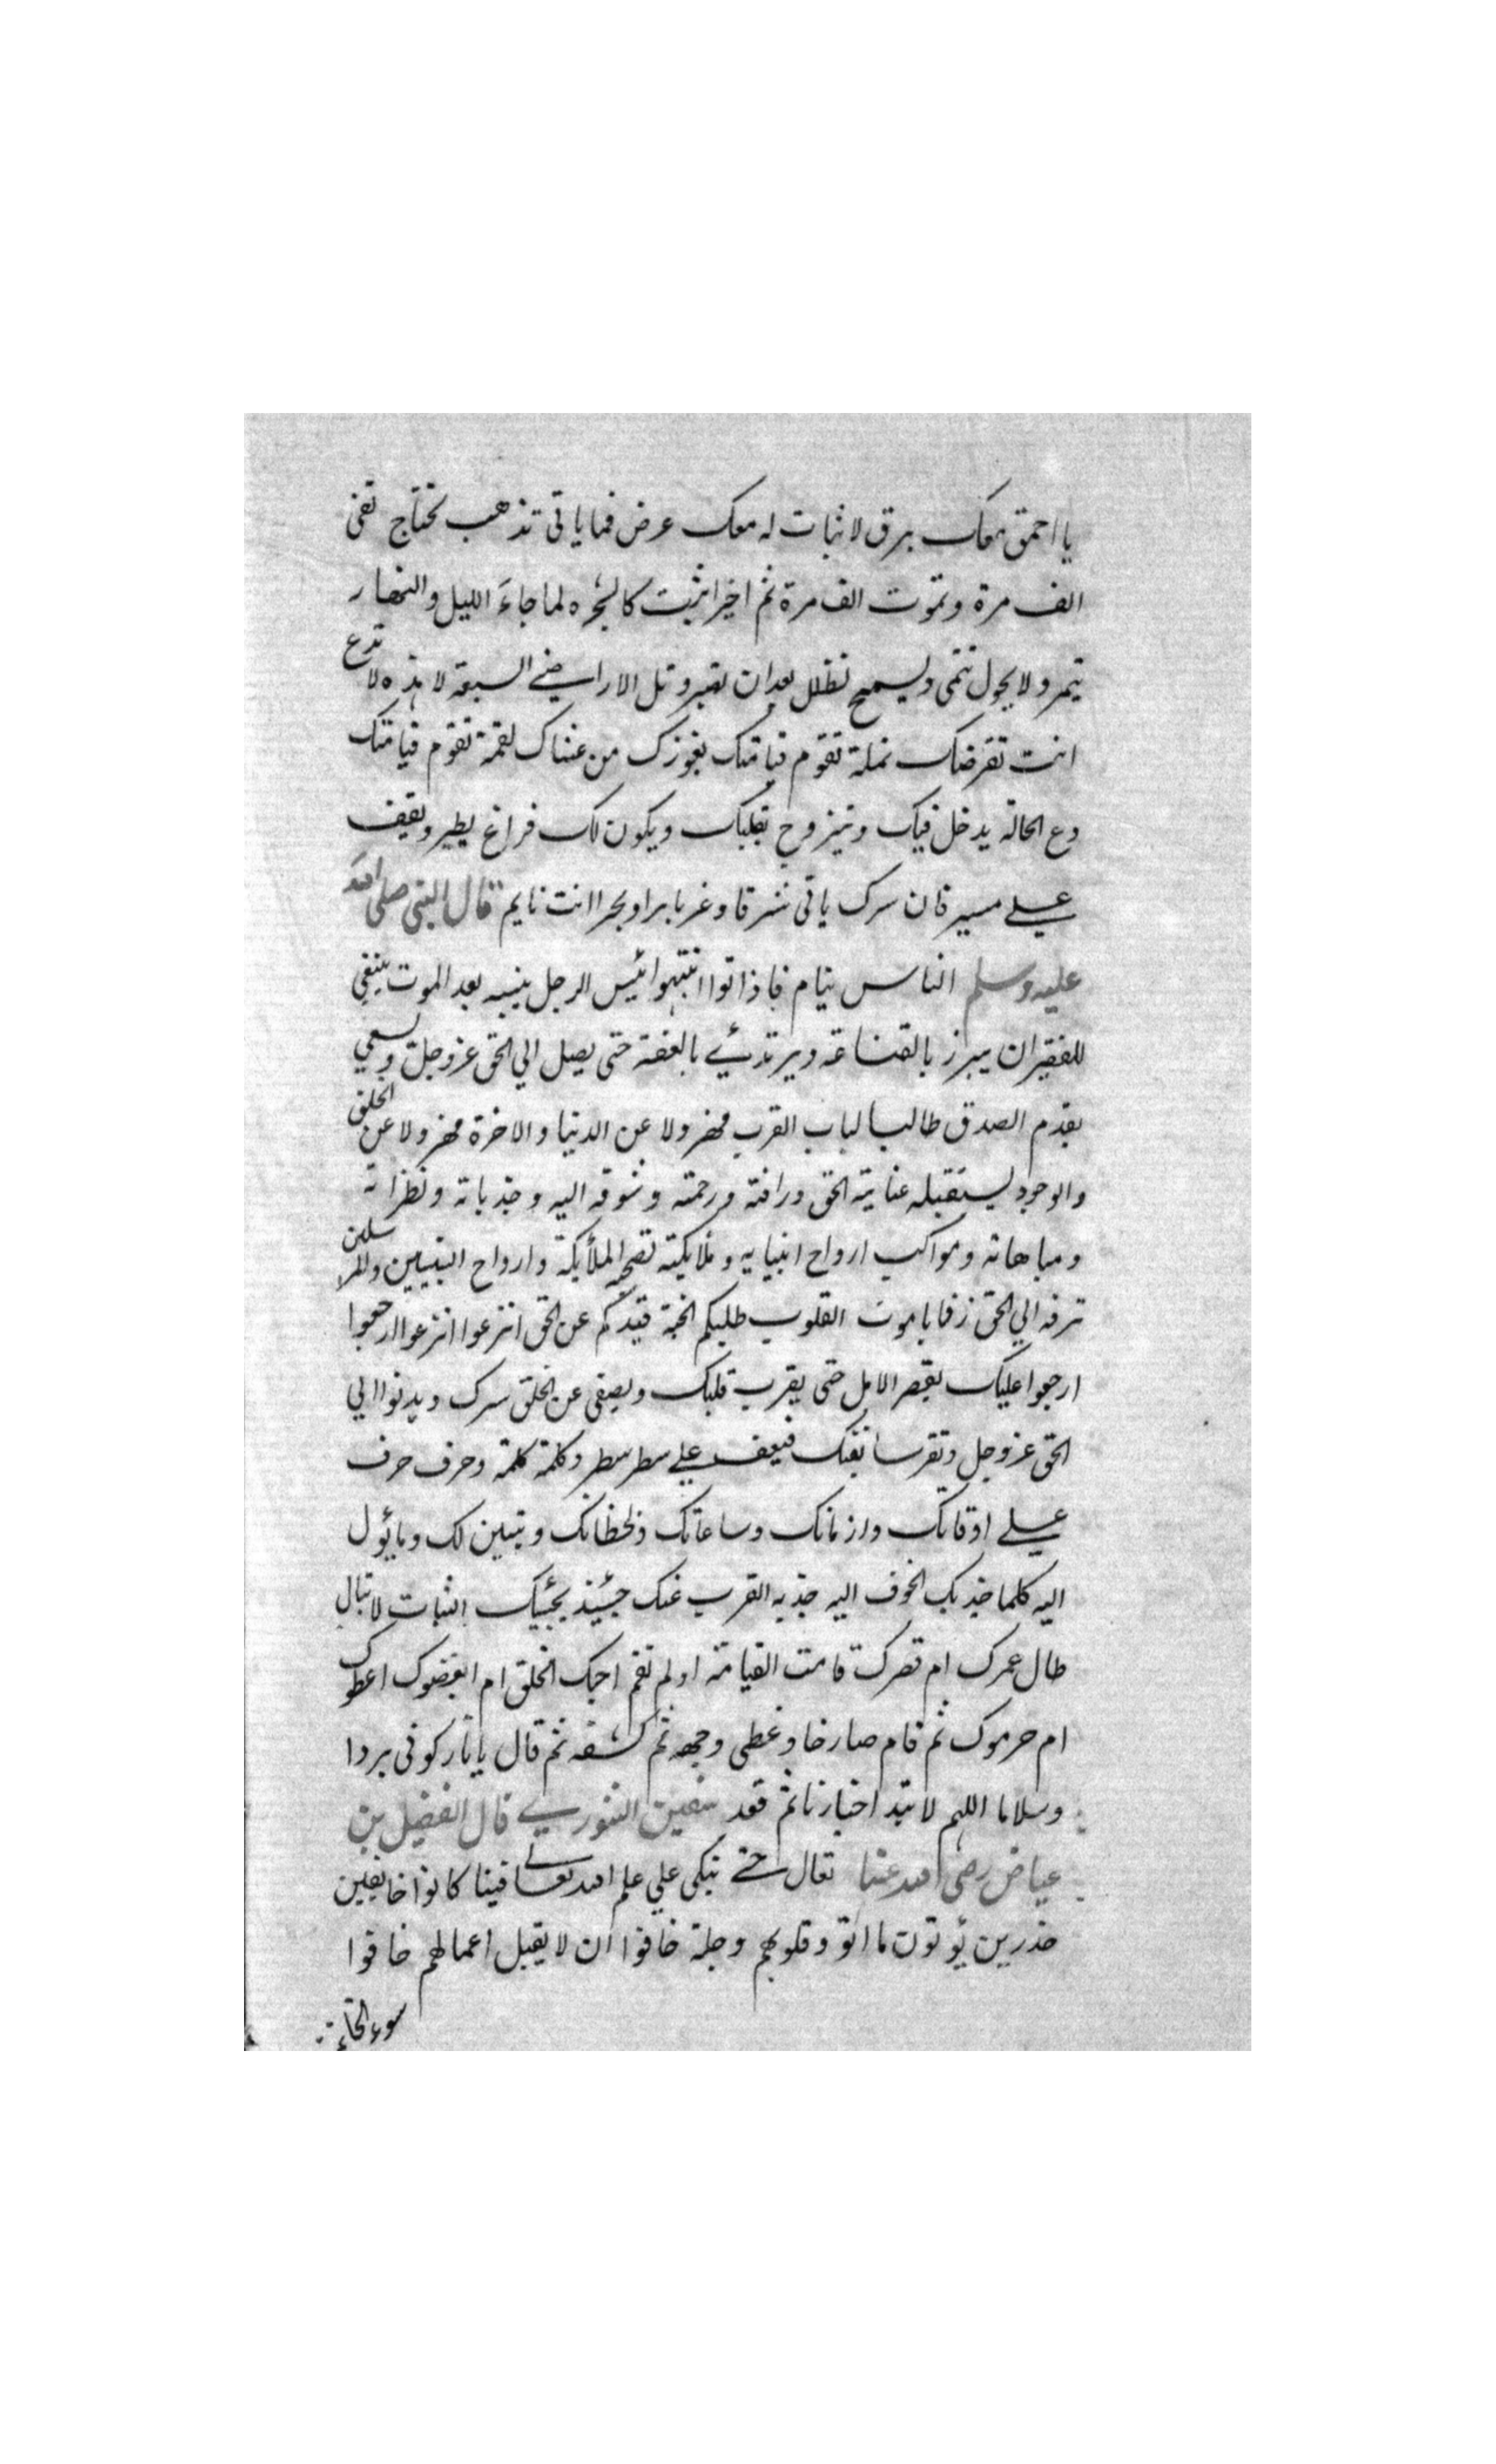 يا احمق معك برق لا ثبات له معك عرض فما ياتى تذهب تحتاج تفنى
الف مرة وتموت الف مرة ثم اخيرا تثبت كالشجرة لما جاء الليل والنهار
يتمر ولا يحول تنمى وليسمح تظلل بعد ان تعبر وتل الاراضي السبعة لا هذه لا تدع
انت تقرضك نملة تقوم قيامتك يعوزك من عشاك لقمة تقوم قيامتك
دع الحالة يدخل فيك وتيزوج بقلبك ويكون لك فراغ يطير ويقف
علي مسيرة ان سرك ياتى شرقا وغربا برا وبحرا انت نايم قال النبي صلى الله
عليه وسلم الناس نيام فاذا توا انتبهوا ئيس الرجل ينتبه بعد الموت ينبغي
للفقير ان يبرز بالقناعة ويرتدئي بالعفة حتى يصل الي الحق عز وجل ويسعي
بقدم الصدق طالبا لباب القرب مهرولا عن الدنيا والاخرة مهرولا عن الخلق
والوجود ليستقبله عناية الحق ورافته ورحمته وشوقه اليه وجذباته ونظراته
ومباهاته ومواكب ارواح انبيايه وملايكته تصحبه الملأيكة وارواح النبيين والمرسلين
ترفه الي الحق زفا يا موت القلوب طلبكم الجنة قيدكم عن الحق انزعوا انزعوا ارجعوا
ارجعوا عليك بقصر الامل حتى يقرب قلبك ويصفى عن الخلق سرك ويدنوا الي
الحق عز وجل وتقر سابقتك فيقف علي سطر سطر وكلمة كلمة وحرف حرف
علي اوقاتك وازمانك وساعاتك ولحظاتك ويتبين لك وما يؤول
اليه كلما جذبك الخوف اليه جذبه القرب عنك حيئذ يجيئك الثبات لا تبال
طال عمرك ام قصرك قامت القيامة او لم تقم احبك الخلق ام ابغضوك اعطوك
ام حرموك ثم قام صارخا وغطى وجهه ثم كشفه ثم قال يا نار كونى بردا
وسلاما اللهم لا تبد اخبارنا ثم قعد سفين الثوري قال الفضيل بن
عياض رضى الله عنها تعال حتى نبكى علي علم الله تعالى فينا كانوا خايفين
حذرين يؤتون ما اتو وقلوبهم وجلة خافوا ان لا يقبل اعمالهم خافوا
سوء الخاتمة